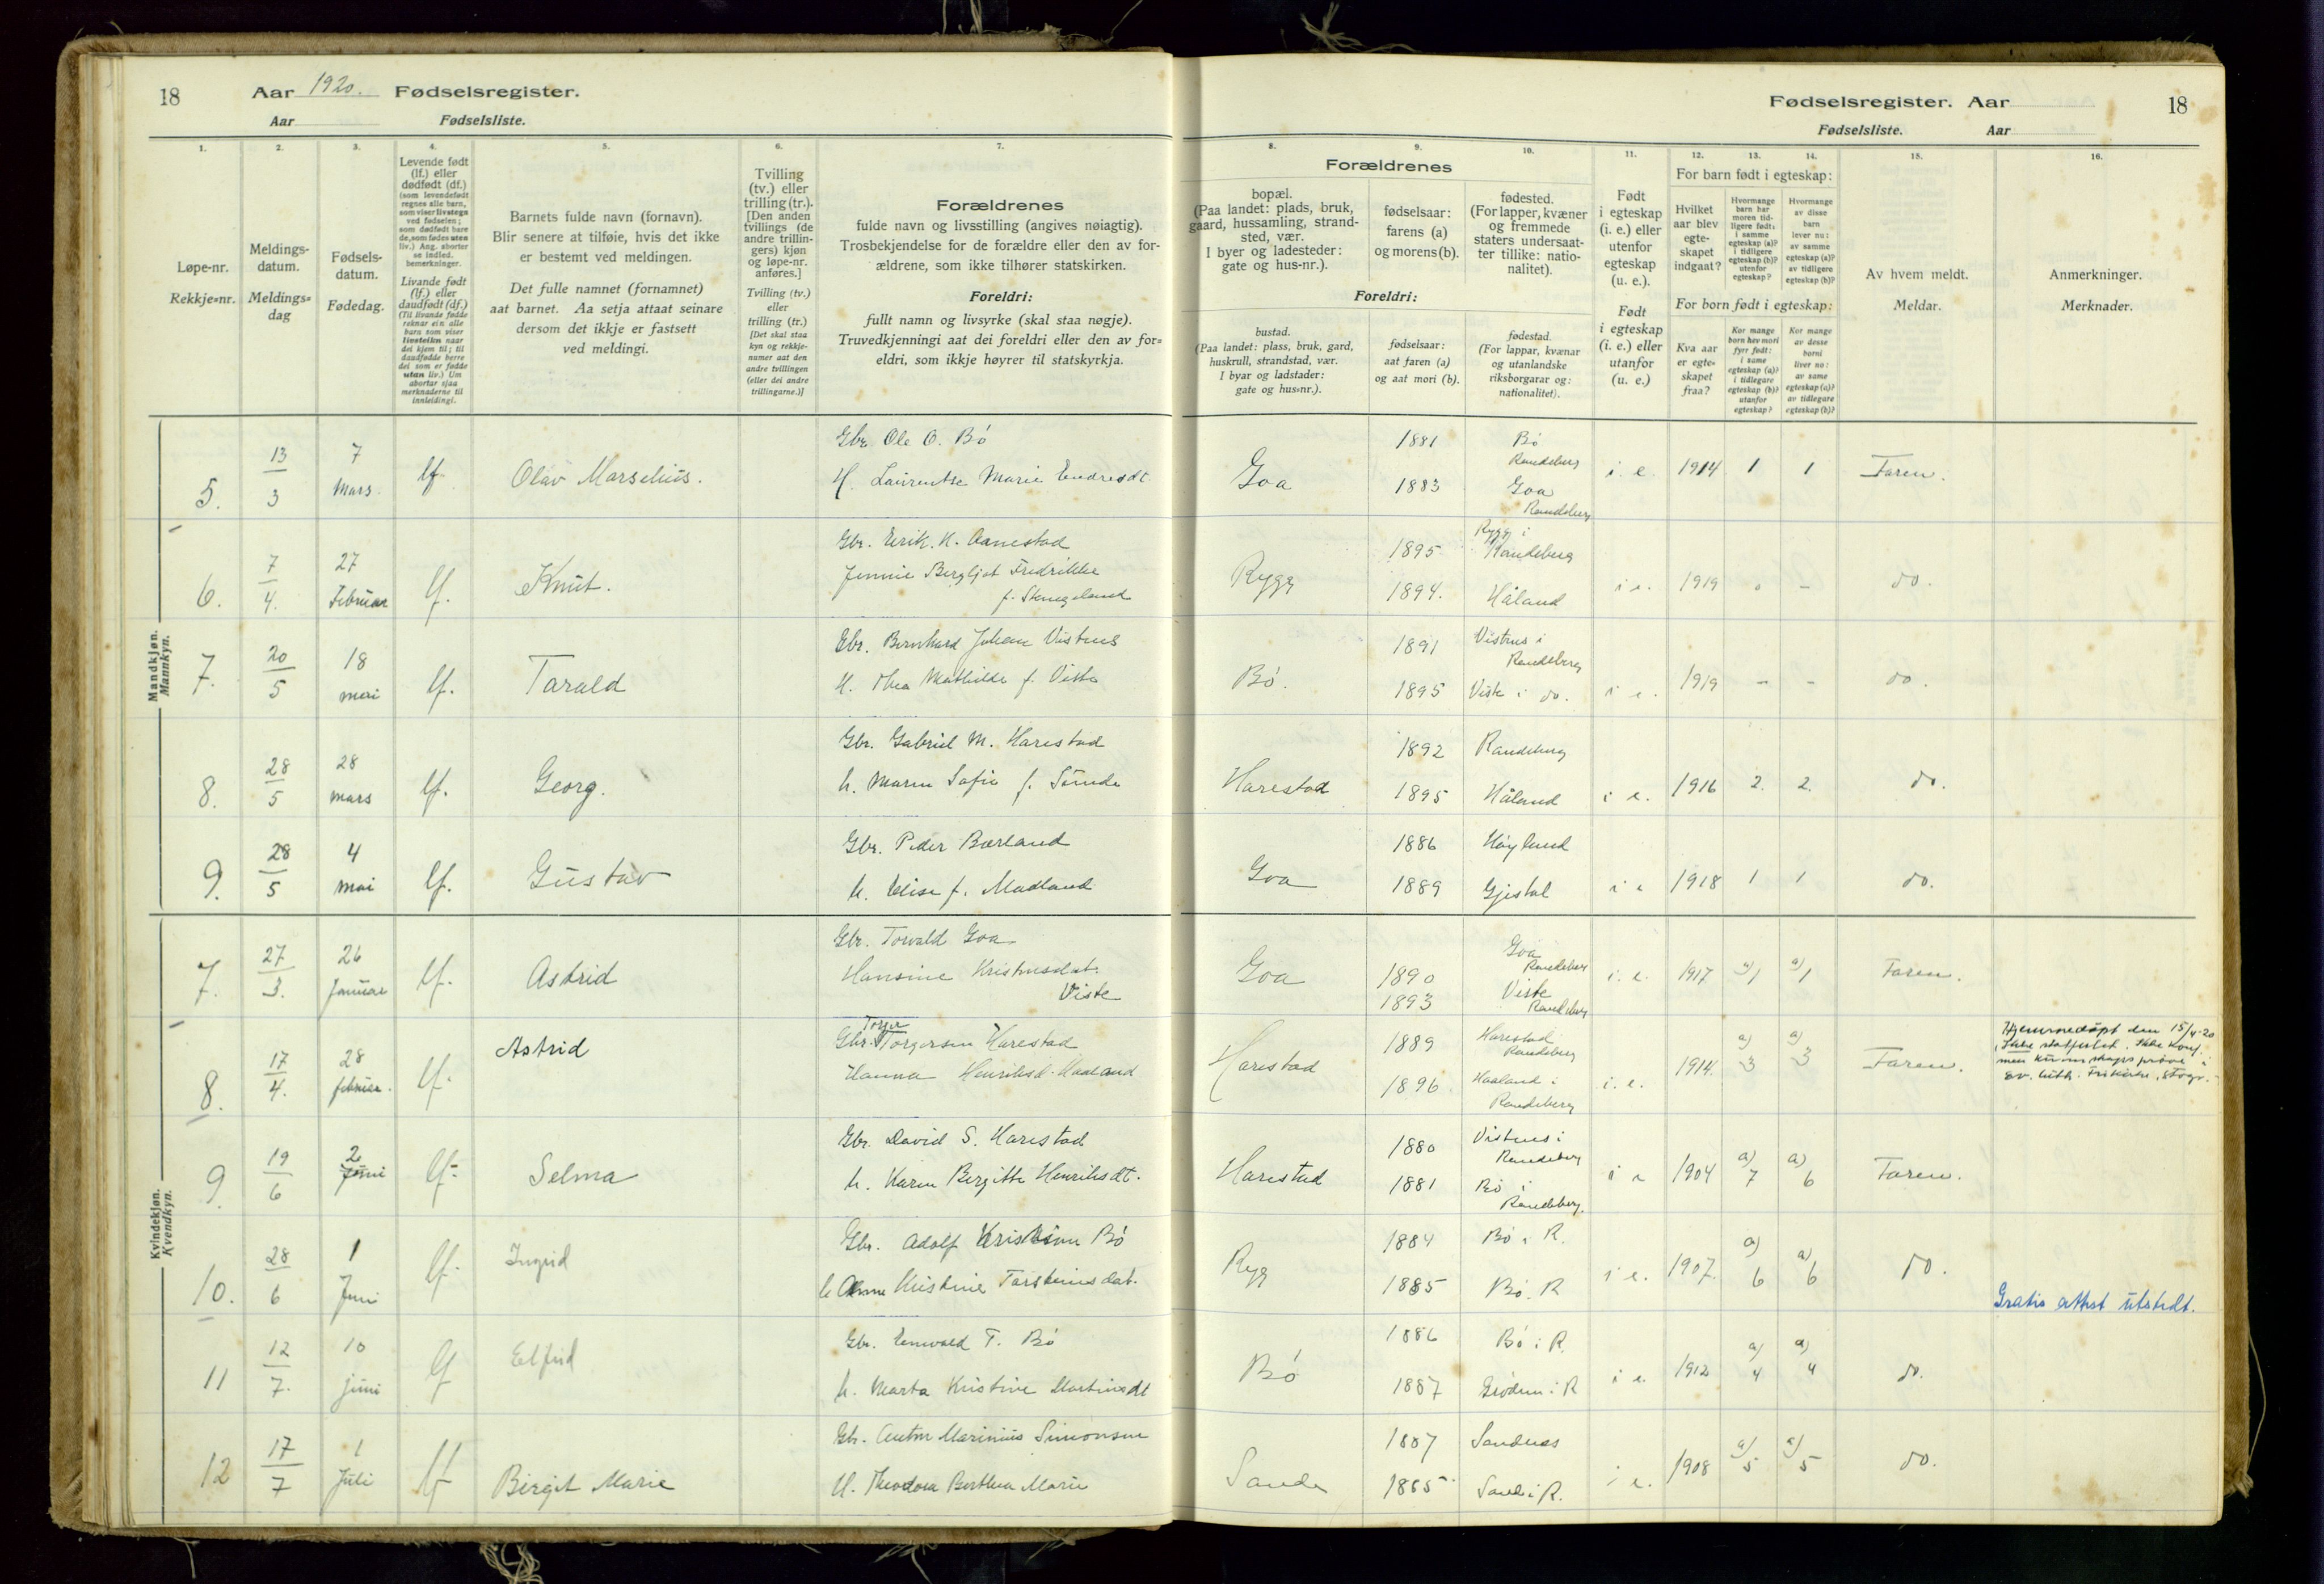 18
Aar 1920. Fødselsregister.
Aar Fødselsliste.
Fødselsregister. Aar
18
Fødselsliste. Aar
1.
Løpe-nr.
Rekkje=nr.
2.
Meldings-
datum.
Meldings=
dag
3.
Fødsels-
datum.
Fødedag.
4.
Levende født
(lf.) eller
dødfødt (df.)
(som levendefødt
regnes alle barn,
som viser livstegn
ved fødselen;
som dødfødt bare
de, som fødes uten
liv.) Ang. aborter
se indled.
bemerkninger.
Livande født
(lf.) eller
daudfødt (df.)
(Til livande fødde
reknar ein alle
barn som viser
livsteikn naar
dei kjem til; til
daudfødde berre
dei som er fødde
utan liv.) Um
abortar sjaa
merknaderne til
innleidingi.
5.
Barnets fulde navn (fornavn).
Blir senere at tilføie, hvis det ikke
er bestemt ved meldingen.
Det fulle namnet (fornamnet)
aat barnet. Aa setja attaat seinare
dersom det ikkje er fastsett
ved meldingi.
6.
Tvilling
(tv.) eller
trilling (tr.).
[Den anden
tvillings (de
andre trillin-
gers) kjøn
og løpe-nr.
anføres.]
Tvilling (tv.)
eller
trilling (tr.)
[Det skal staa
kyn og rekkje-
numer aat den
andre tvillingen
(eller dei andre
trillingarne.)]
7.
Forældrenes
fulde navn og livsstilling (angives nøiagtig).
Trosbekjendelse for de forældre eller den av for-
ældrene, som ikke tilhører statskirken.
Foreldri:
fullt namn og livsyrke (skal staa nøgje).
Truvedkjenningi aat dei foreldri eller den av for=
eldri, som ikkje høyrer til statskyrkja.
Forældrenes
8.
bopæl.
(Paa landet: plads, bruk,
gaard, hussamling, strand-
sted, vær.
I byer og ladesteder:
gate og hus-nr.).
9.
fødselsaar:
farens (a)
og morens (b).
10.
fødested.
(For lapper, kvæner
og fremmede
staters undersaat-
ter tillike: natio-
nalitet).
Foreldri:
bustad.
(Paa landet: plass, bruk, gard,
huskrull, strandstad, vær.
I byar og ladstader:
gate og hus=nr.).
fødselsaar:
aat faren (a)
og aat mori (b).
fødestad.
(For lappar, kvænar
og utanlandske
riksborgarar og:
nationalitet).
11.
Født
i egteskap
(i. e.) eller
utenfor
egteskap
(u. e.).
Født
i egteskap
(i. e.) eller
utanfor
(u. e.)
12. 13. 14.
For barn født i egteskap:
Hvilket
aar blev
egte-
skapet
indgaat?
Hvormange
barn har
moren tid-
ligere født:
i samme
egteskap (a)?
i tidligere
egteskap (b)?
utenfor
egteskap?
Hvormange
av disse
barn
lever nu:
av samme
egteskap (a)?
av tidligere
egteskap (b)?
For born født i egteskap:
Kva aar
er egte-
skapet
fraa?
Kor mange
born hev mori
fyrr født:
i same
egteskap (a)?
i tidlegare
egteskap (b)?
utanfor
egteskap?
Kor mange
av desse
borni
liver no:
av same
egteskap (a)?
av tidlegare
egteskap (b)?
15.
Av hvem meldt.
Meldar.
16.
Anmerkninger.
Merknader.
Mandkjøn.
Mannkyn.
5. 13/3 7 Mars. lf. Olav Marselius.
Gbr. Ole O. Bø
H. Laurentse Marie Endresdt.
Goa 1881 1883
Bø Randeberg
Goa Randeberg
i. e. 1914 1 1 Faren.
6. 7/4. 27 Februar lf. Knut.
Gbr. Eirik. K. Aanestad
Jennie Bergljot Fredrikke
f. Stangeland
Rygg 1895 1894.
Rygg i
Randeberg
Håland
i e. 1919 0 - do.
7. 20/5 18 mai lf. Tarald
Gbr. Bernhard Johan Vistnes
H. Thea Mathilde f. Viste
Bø. 1891 1895
Vistnes i
Randeberg
Viste i do.
i e. 1919 - - do.
8. 28/5 28 mars lf. Georg.
Gbr. Gabriel M. Harestad
h. Maren Sofie f. Sunde
Harestad 1892 1895
Randeberg
Håland
i e. 1916 2. 2. do.
9. 28/5 4 mai lf. Gustav
Gbr. Peder Bærland
h. Elise f. Madland
Goa 1886 1889
Høyland
Gjestal
i e 1918 1 1 do.
Kvindekjøn.
Kvendkyn.
7. 27/3. 26 Januar lf. Astrid
Gbr. Torvald Goa
Hansine Kristensdat.
Viste
Goa 1890 1893
Goa Randeberg
Viste Randeberg
i. e. 1917 a) 1 a) 1 Faren.
8. 17/4. 28 februar. lf. Astrid
Torger
Gbr. Torgersen Harestad
Hanna Henriksd. Haaland
Harestad 1889 1896
Harestad
Randeberg
Haaland i
Randeberg
i. e. 1914. a) 3 a) 3 Faren.
Hjemmedøpt den 15/4-20
Ikke Konf.
men kunnskapsprøve i
Ev. luth. Frikirke, Stvgr.
9 19/6 2 Juni lf. Selma
Gbr. David S. Harestad
h. Karen Bergitte Henriksdt.
Harestad 1880 1881
Vistnes i
Randeberg
Bø i
Randeberg.
i e 1904 a) 7 a) 6 Faren.
10. 28/6 1 Juni lf. Ingrid
Gbr. Adolf Kristensen Bø
h Anne Kristine Torsteinsdat.
Ryg 1884 1885
Bø i R.
Bø. R
i e. 1907. a) 6 a) 6 do.
Gratis attest utstedt.
11 12/7. 10 juni lf Elfrid
Gbr. Enevald T. Bø
h. Marta Kristine Martinsdt
Bø 1886 1887
Bø i R.
Grødem i R
i e. 1912 a) 4 a) 4 do.
12 17/7 1 Juli lf Birgit Marie
Gbr. Anton Marinius Simonsen
H. Theodora Berthea Marie
Sande 1887 1885
Sandnes
Sande i R.
i e. 1908 a) 5 a) 5 do.